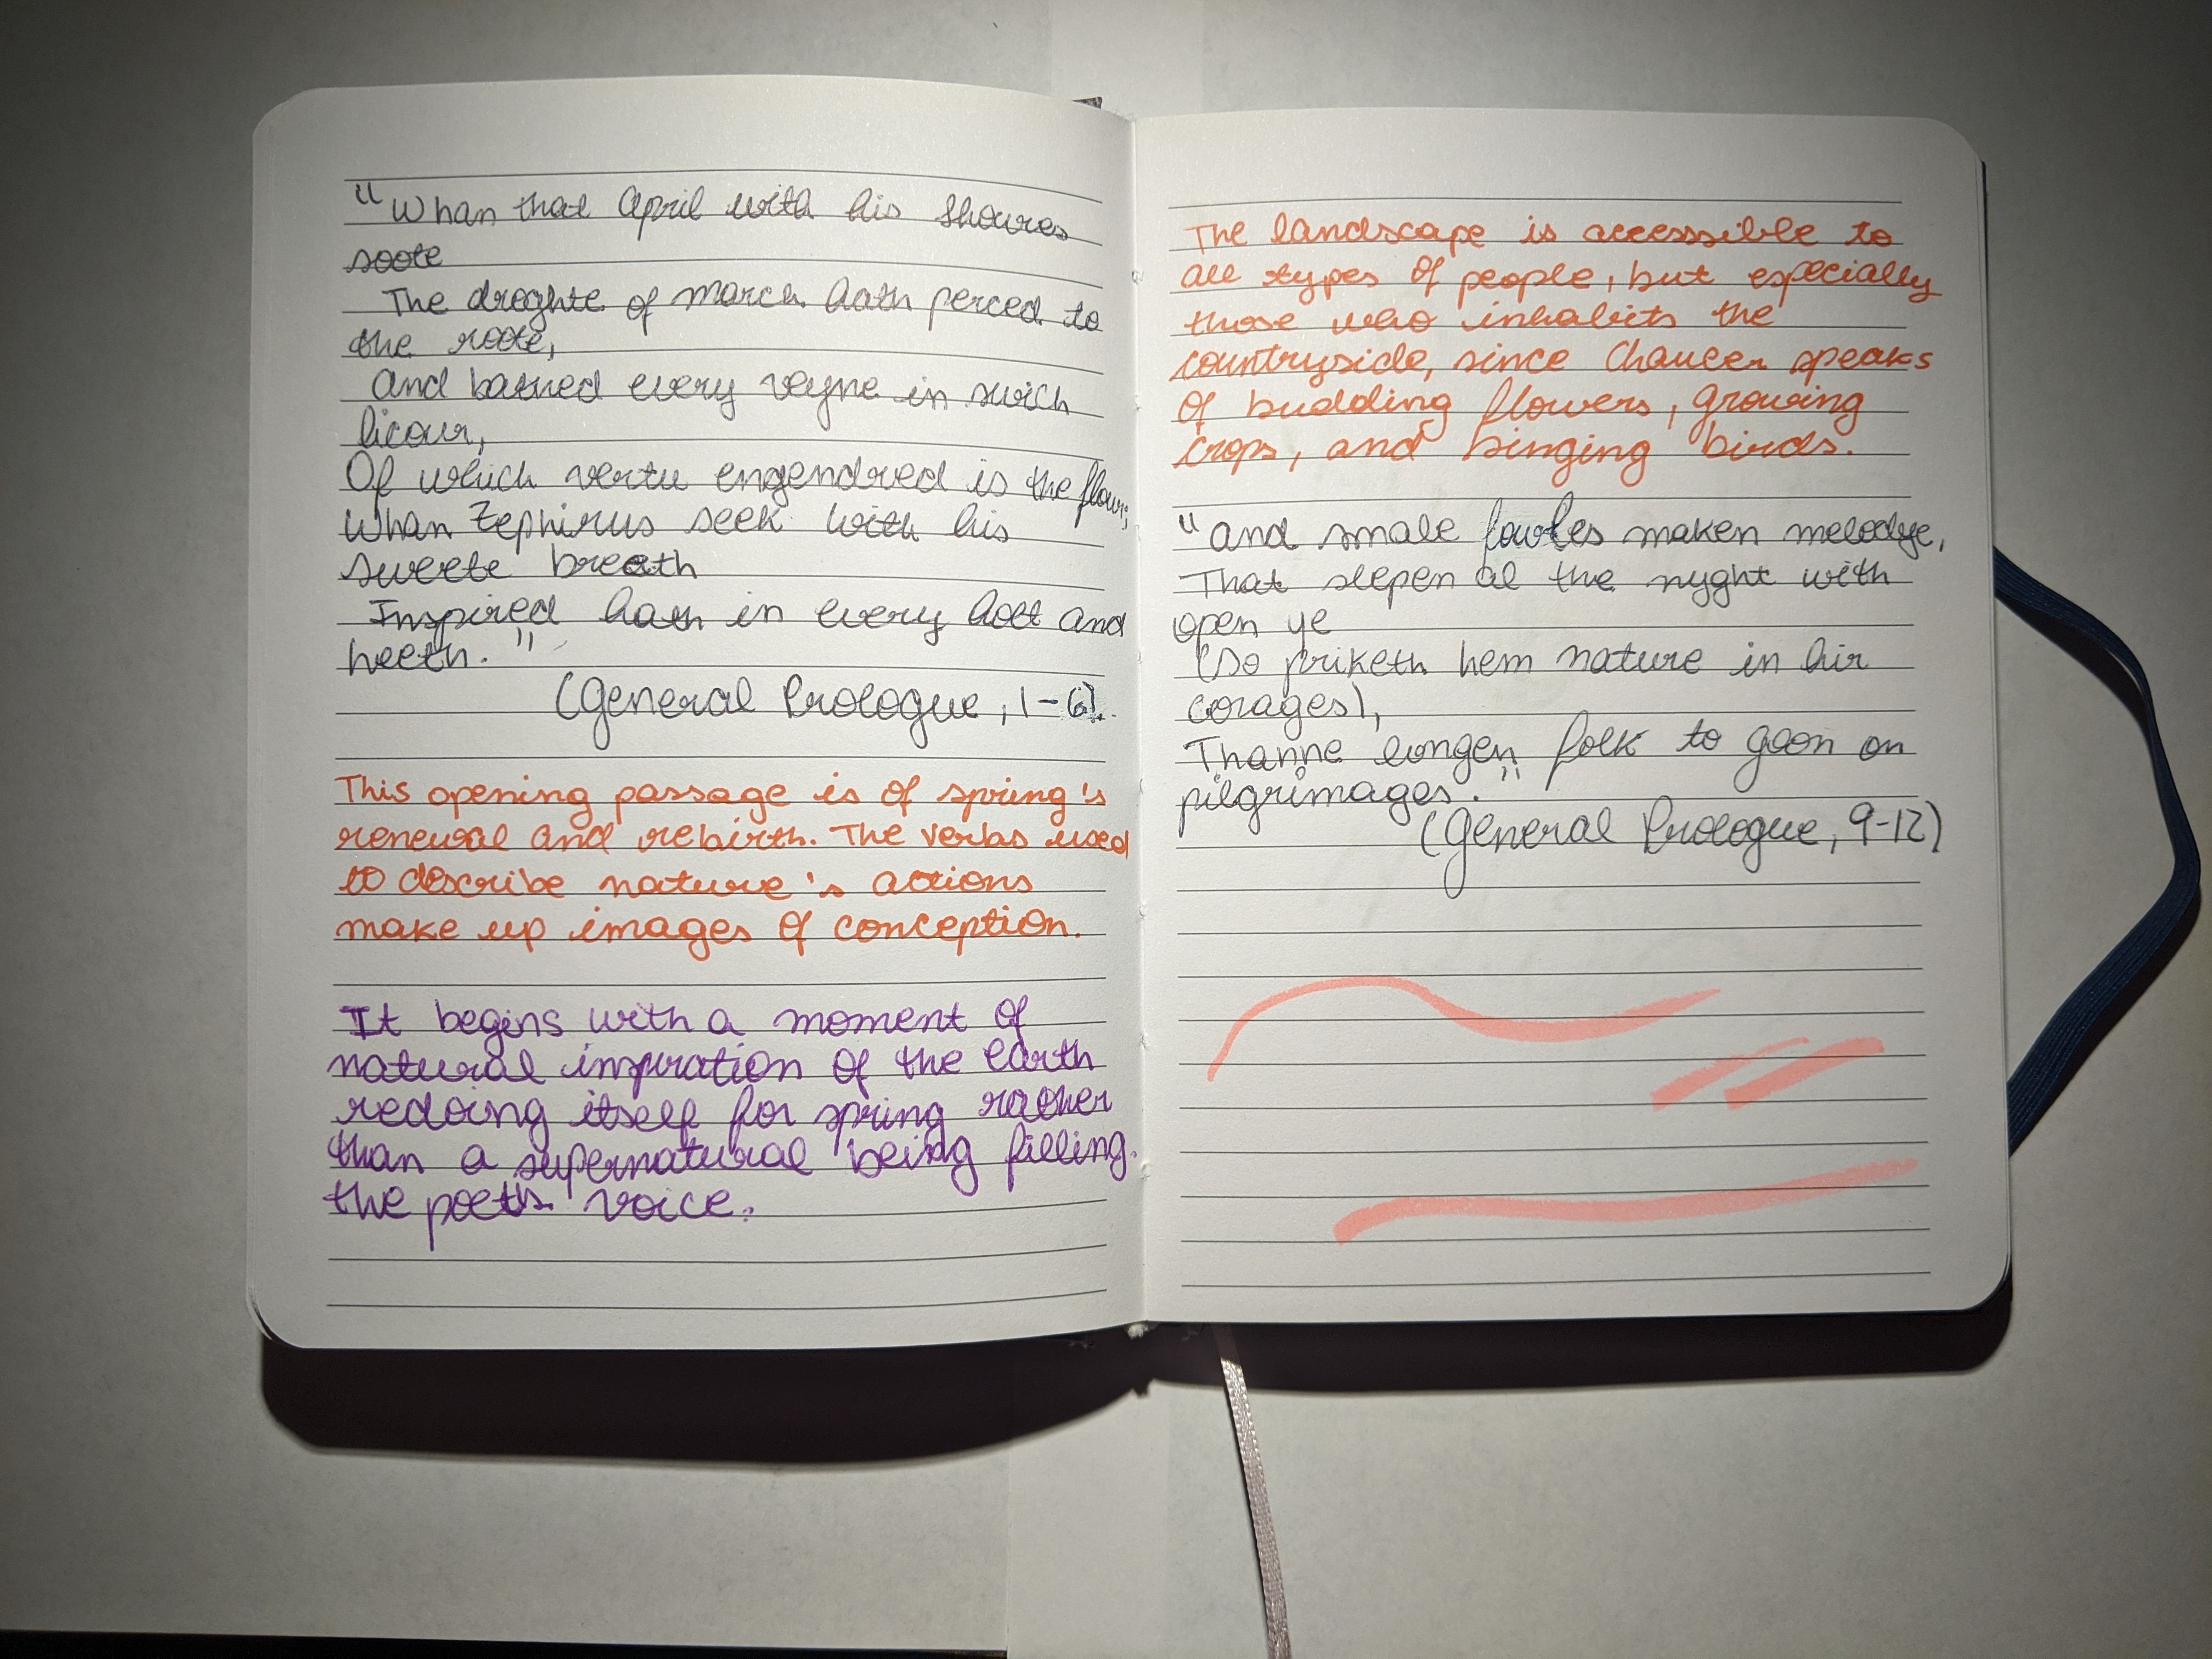 "Whan that April with his Shoures
soote
The droghte of march hath perced to
the roote,
and bathed every veyne in swich
licour,
Of which vertu engendred is the flour;
Whan Zephirus seek with his
sweete breeth
Inspired hath in every holt and
heeth."
(General Prologue, 1-6).
This opening passage is of spring's
renewal and rebirth. The verbs used
to describe nature's actions
make up images of conception.
It begins with a moment of
natural inspiration of the earth
redoing itself for spring rather
than a supernatural being filling
the poet's voice.
The landscape is accesssible to
all types of people, but especially
those who inhabits the
countryside, since Chaucer speaks
of budding flowers, growing
crops, and singing birds.
"and smale fowles maken melodye,
That slepen al the nyght with
open ye
(So priketh hem nature in hir
corages),
Thanne longen folk to goon on
pilgrimages."
(General Prologue, 9-12)